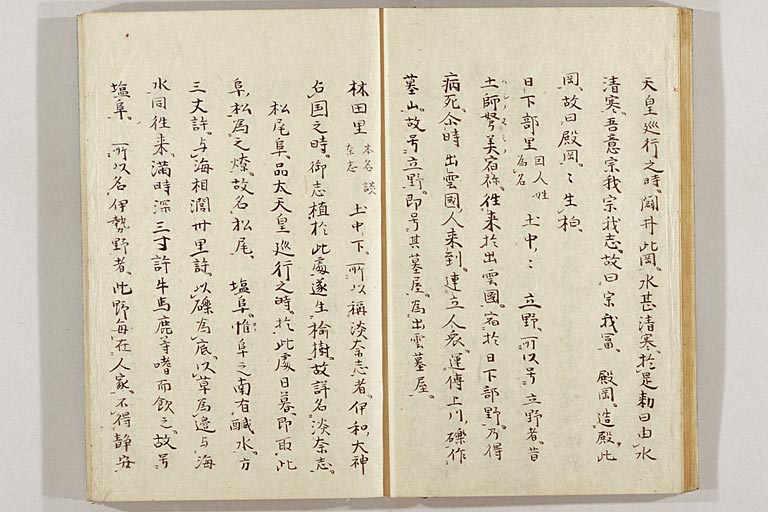 天皇巡行之時闢井此岡水甚清寒於是勅曰由水
清寒吾意宗我宗我志故曰宗我冨　殿岡造殿此
岡故曰殿岡〻生柏
日下部里因人姓為名　土中〻　立野所以号立野者昔
土師弩美宿祢往来於出雲國宿於日下部野乃得
病死尒時出雲國人来到連立人衆運傳上川礫作
墓山故号立野即号其墓屋為出雲墓屋
林田里本名談奈志　土中下所以稱淡奈志者伊和大神
占国之時御志植於此處遂生楡樹故詳名淡奈志
松尾阜品太天皇巡行之時於此處日暮即取此
阜松為之燎故名松尾　塩阜惟阜之南有醎水方
三丈許与海相濶卅里許以礫為底以草為邊与海
水同往来満時深三寸許牛馬鹿等嗜而飲之故号
塩阜　所以名伊勢野者此野毎在人家不得静安